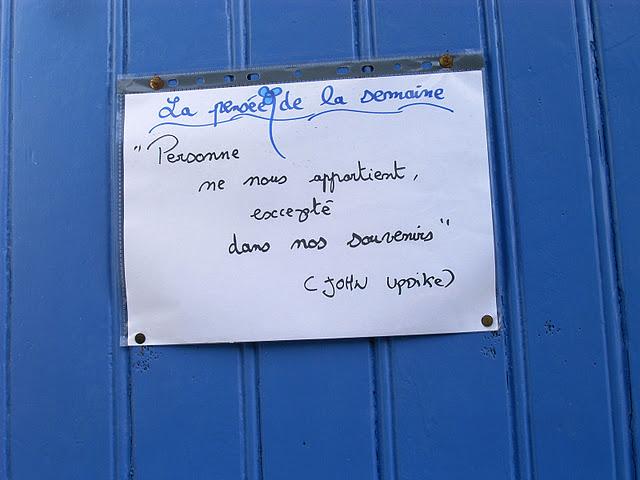 La pensée de la semaine
"Personne
ne nous appartient,
excepté
dans nos souvenirs"
(JOHN UPDIKE)